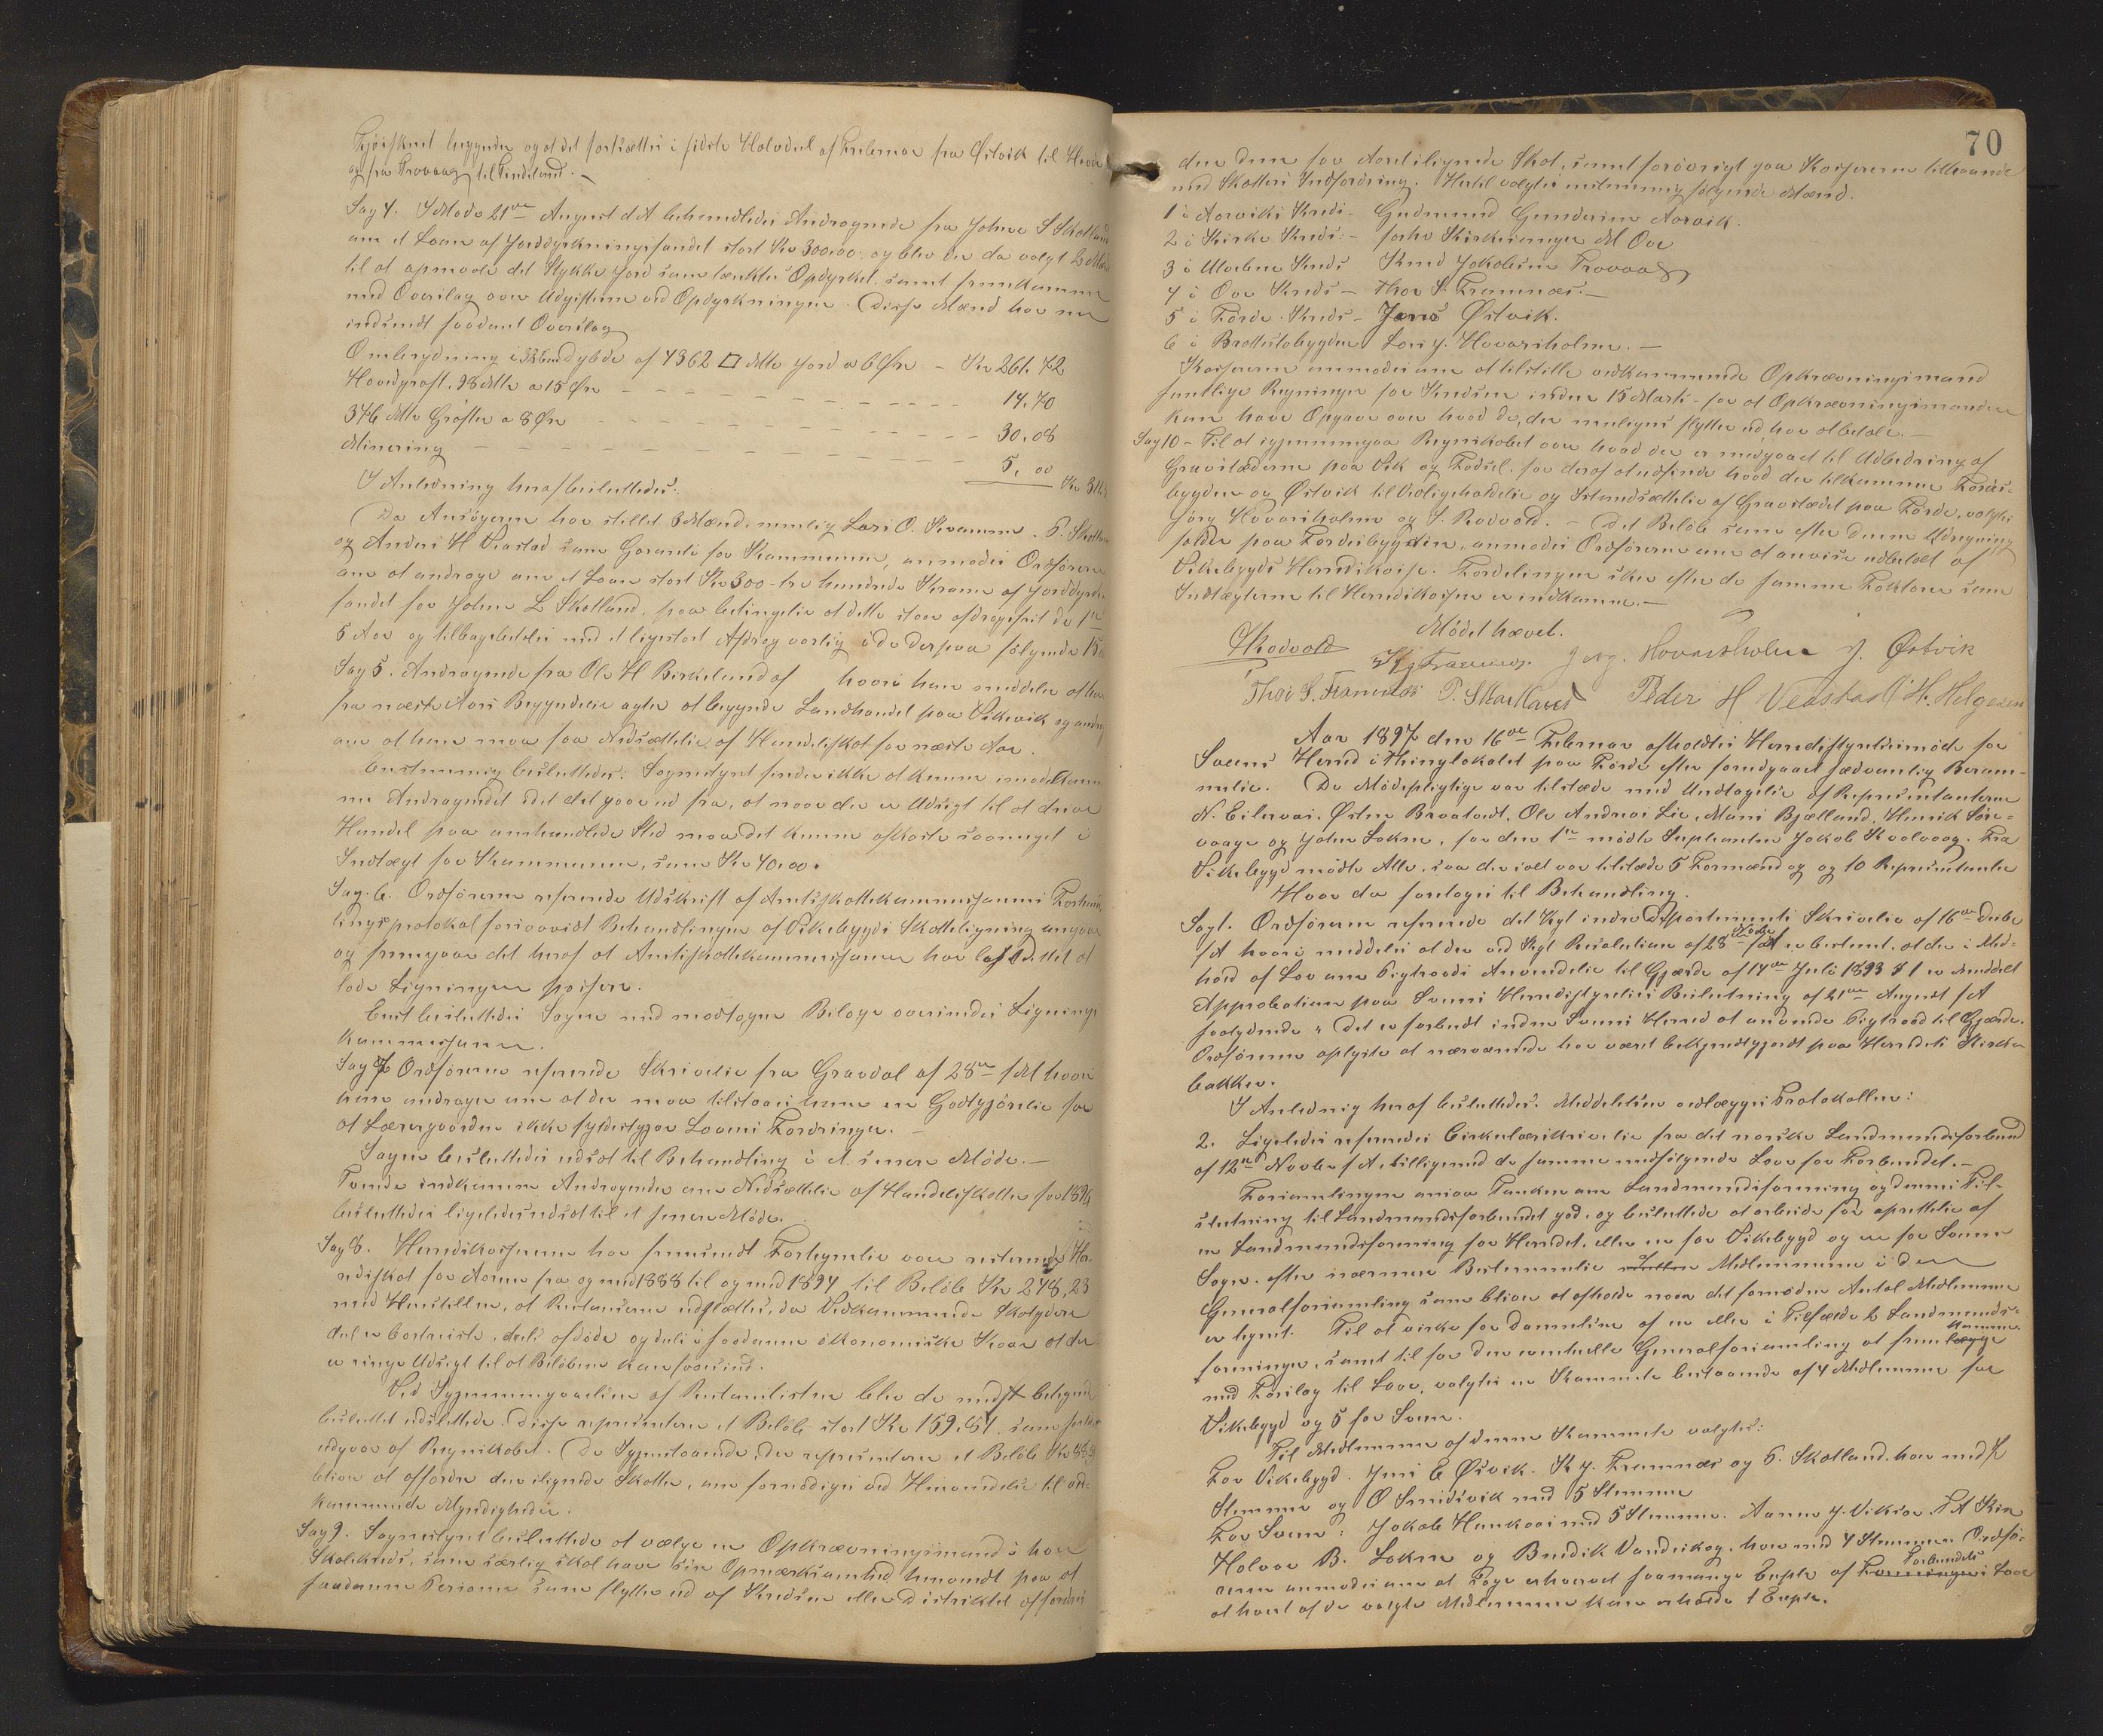 Kjøiskuet begynder og at det fortsættes i sidste Halvdel af Februar fra Østvik til
og fra Trovaag til Tindeland. –
Sag 4. I Møde 21de August d A behandledes Andragende fra Johne S Skotland
om et Laan af Jorddyrkningsfondet stort Kr 300.00. og blev der da valgt 2 Mænd
til at opmaale det Stykke Jord som tænktes Opdyrket samt fremkomme
med Overslag over Udgifterne ved Opdyrkningen. Disse Mænd har nu
indsendt saadant Overslag
Ombrydning i Dybde af 4362 □ Mtr Jord a 6 Øre – Kr 261.72
Hovedgrøft. 98 Mtr a 15 Øre – 14.70
376 Mtr Grøfter a 8 Øre – 30.08
Minering – 5.00
I Anledning heraf besluttedes:
Da Ansøgeren har stillet 3 Mænd, nemlig Lars O. Kvamme, P. Skotland
og Anders H Veastad som Garanti for Kommunen, anmodes Ordføreren
om at andrage om et Laan stort Kr 300 – tre hundrede Kroner af Jorddyrknings
fondet for Johne L Skotland, paa betingelse at dette staar afdragsfrit de 1ste
5 Aar og tilbagebetales med et ligestort Afdrag aarlig i de derpaa følgende 15
Sag 5. Andragende fra Ole H Birkelund af hvori han meddeler at han
fra næste Aars Begyndelse agter at begynde Landhandel paa Vikevik og andrager
om at han maa faa Nedsættelse af Handelsskat for næste Aar.
Enstemmig besluttedes: Sognestyret finder ikke at kunne imødekomme
Andragendet idet det gaar ud fra, at naar der er Udsigt til at drive
Handel paa omhandlede Sted maa det kunne afkaste saameget i
Indtægt for Kommunen, som Kr 40.00.
Sag 6. Ordføreren refererede Udskrift af Amtsskattekommissionens Forhand
lingsprotokol forsaavidt Behandlingen af Vikebygds Skatteligning angaar
og fremgaar det heraf at Amtsskattekommissionen har besluttet at
lade Ligningen passere.
Enst. besluttedes Sagen med modtagne Bilage oversendes Lignings
kommissionen.
Sag 7 Ordføreren refererede Skrivelse fra Gravdal af 28de f M hvori
han andrager om at der maa tilstaaes ham en Godtgjørelse for
at Lærergaarden ikke fyldestgjør Lovens Fordringer. –
Sagen besluttedes udsat til Behandling i et senere Møde. –
Tvende indkomne Andragender om Nedsættelse af Handelsskatten for 1896
besluttedes ligeledes udsat til et senere Møde.
Sag 8. Herredskassereren har fremsendt Fortegnelse over resterende Her-
redsskat for Aarene fra og med 1888 til og med 1894 til Beløb Kr 248,23
med Henstillen, at Restancerne udslettes, da Vedkommende Skatydere
del er bortreiste, dels afdøde og dels i saadanne økonomiske Kaar at der
er ringe Udsigt til at Beløbene kan faaes ind.
Ved Igjennemgaaelsen af Restancelisten blev de med st betegnede
besluttet udslettede. Disse repræsenterer et Beløb stort Kr 159.81. som
udgaar af Regnskabet. De Igjenstaaende, der repræsenterer et Beløb Kr
bliver at affordre den ilignede Skatter, om fornødiges ved Henvendelse til ved-
kommende Myndigheder.
Sag 9. Sognestyret besluttede at vælge en Opkrævningsmand i hver
Skolekreds, som særlig skal have sin Opmærksomhed henvendt paa at
saadanne Personer som flytter ud af Kredsen eller Distriktet affordres
70
den dem for Aaret ilignede Skat, samt forøvrigt gaa Kassereren tilhaande
med Skattens Indfordring. Hertil valgtes enstemmig følgende Mænd.
1 i Aarviks Kreds – Gudmund Gundersen Aarvik.
2 i Kirke Kreds – forhv Kirkesanger M Ove
3 i Kreds Knud Jakobsen Trovaag
4 i Ove Kreds – Thor S. Framnæs. –
5 i Førde Kreds – Jens Østvik.
6 i Brattstøbygden Lars J. Hovarsholm. –
Kassereren anmodes om at tilstille vedkommende Opkrævningsmand
samtlige Regninger for Kredsen inden 15 Marts – for at Opkrævningsmanden
kan have Opgave over hvad de, der muligens flytter ud, har at betale. –
Sag 10 – Til at igjennemgaa Regnskabet over hvad der er medgaaet til Udbedring af
Gravstæderne paa Vik og for deraf at udfinde hvad der tilkommer Førdes-
bygden og Østvik til Vedligeholdelse og Istandsættelse af Gravstedet paa Førde, valgtes
Jørg Hovarsholm og S. Rodvold. – Det Beløb som efter denne Udregning
falder paa Førdesbygden, anmodes Ordføreren om at anvise udbetalt af
Vikebygds Herredskasse. Fordelingen sker efter de samme Faktorer som
Indtægterne til Herredskassen er indkomne. –
Mødet hævet.
S Rodvold Kj Framnæs. Jørg. Hovarsholm J. Østvik
Thor S. Framnæs P. Skotland Peder H Veastad H. Helgesen
Aar 1897 den 16de Februar afholdtes Herredsstyrelsesmøde for
Sveens Herred i Thinglokalet paa Førde efter forudgaaet sædvanlig Beram-
melse. De Mødepligtige var tilstede med Undtagelse af Repræsentanterne
N. Eilervas, Østen Braatvedt, Ole Andreas Lie, Mons Bjælland, Henrik Lør-
vaag og John Lokne, for den 1ste mødte Suplenten Jakob Kvalvaag. Fra
Vikebygd mødte Alle, saa der ialt var tilstede 5 Formænd og og 10 Repræsentanter
Hvor da foretoges til Behandling
Sag 1. Ordføreren refererede det Kgl indre Departements Skrivelse af 16de Decbr
f A hvori meddeles at der ved Kgl Resolution af 28de Novbr f A er bestemt, at der i Med-
hold af Lov om Pigtraads Anvendelse til Gjærde af 14de Juli 1893 § 1 er meddelt
Approbation paa Sveens Herredsstyrelses Beslutning af 21de August f A
saalydende „Det er forbudt inden Sveens Herred at anvende Pigtraad til Gjærde.
Ordføreren oplyste at nærværende har været bekjendtgjordt paa Herredets Kirke
bakker.
I Anledning heraf besluttedes. Meddelelsen vedlægges Protokollen:
2. Ligeledes refereredes Cirkulærskrivelse fra det norske Landmandsforbund
af 12te Novbr f A tilligemed de samme medfølgende Love for Forbundet. –
Forsamlingen ansaa Tanken om Landmandsforening og dennes Til-
slutning til Landmandsforbundet god, og besluttede at arbeide for oprettelse af
en Landmandsforening for Herredet, eller en for Vikebygd og en for Sveen
Sogn, efter nærmere Bestemmelse Medlemmerne i den
Generalforsamling som bliver at afholde naar det fornødne Antal Medlemmer
er tegnet. Til at virke for Dannelsen af en eller i Tilfælde 2 Landmands-
foreninger, samt til for den eventuelle Generalforsamling at fremkomme
med Forslag til Love, valgtes en Kommite bestaaende af 4 Medlemmer for
Vikebygd og 5 for Sveen.
Til Medlemmer af denne Kommite valgtes:
For Vikebygd. Jens E Østvik. K J. Framnæs og P. Skotland. hver med
Stemmer og O Smidsvik med 5 Stemmer
For Sveen: Jakob Haukaas med 5 Stemmer. Aamu J. Viksø. P A Kin
Halvor B. Lokne og Bendik Vandaskog, hver med 4 Stemmer. Ordfø-
reren anmodes om at søge erhvervet saamange Expl. af Forbundets Love
at hvert af de valgte Medlemmer kan erholde 1 Expl.